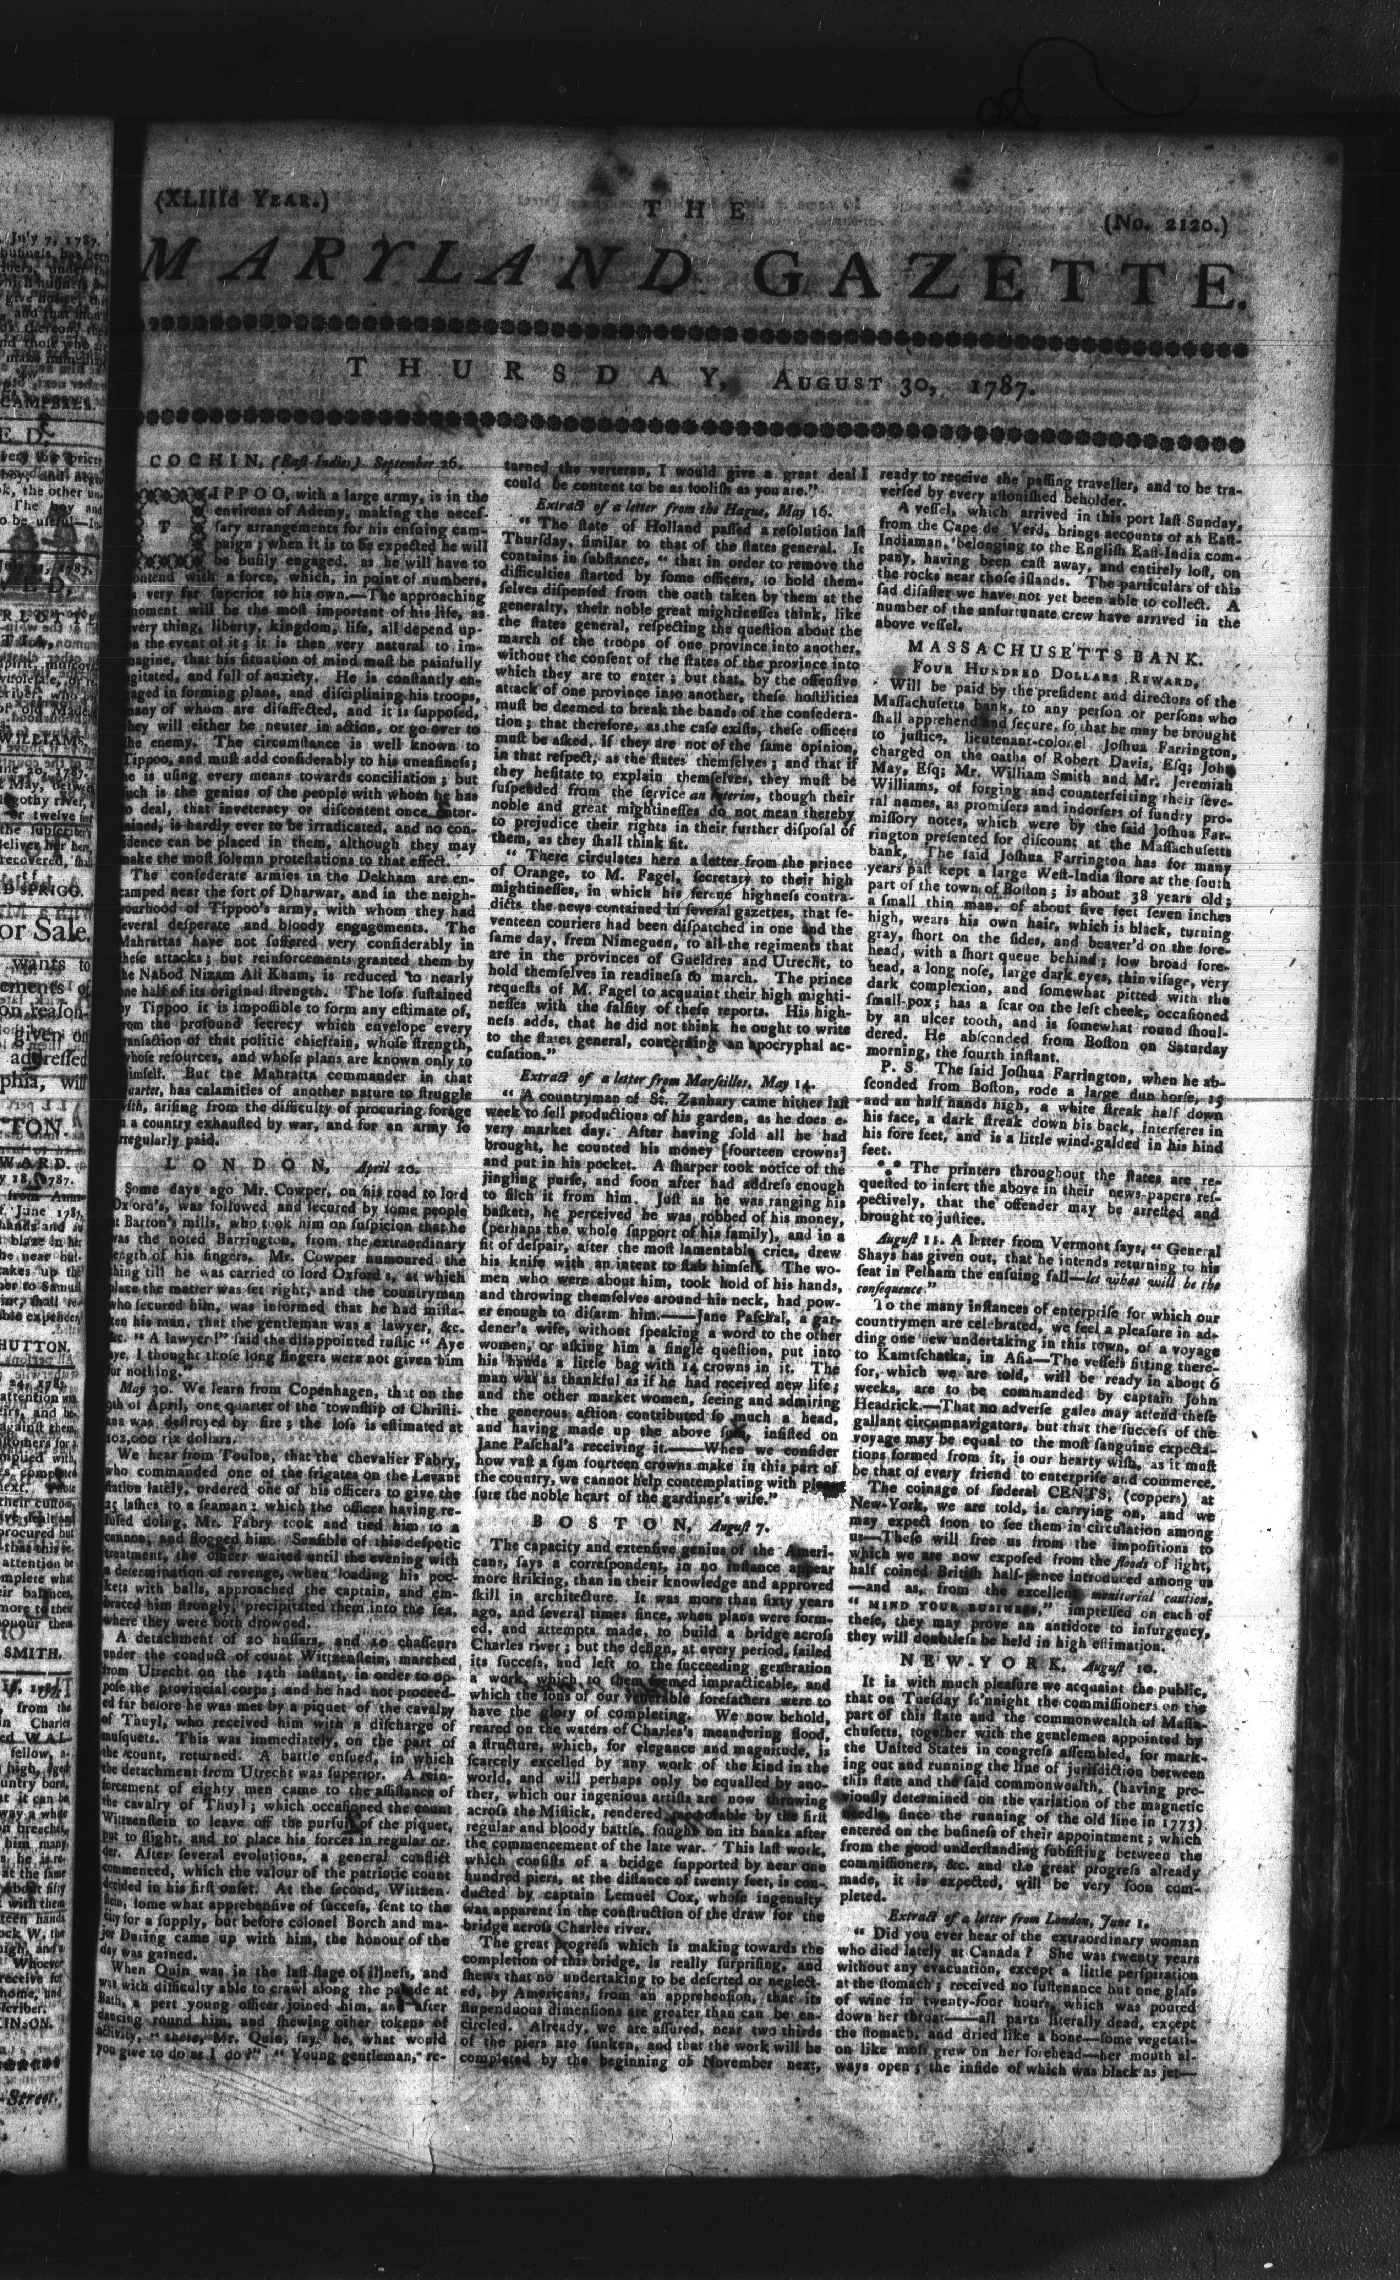 (XLIIId YEAR.)
THE
(No. 2120.)
MARYLAND GAZETTE.
THURSDAY, AUGUST 30, 1787.
COCHIN, (East-Indies) September 26.
TIPPOO, with a large army, is in the
environs of Ademy, making the neces-
sary arrangements for his ensuing cam-
paign; when it is to be expected he will
be busily engaged, as he will have to
contend with a force, which, in point of numbers,
is very far superior to his own.—The approaching
moment will be the most important of his life, as
every thing, liberty, kingdom, life, all depend up-
on the event of it; it is then very natural to im-
magine, that his situation of mind must be painfully
agitated, and full of anxiety. He is constantly en-
gaged in forming plans, and disciplining his troops,
many of whom are disaffected, and it is supposed,
they will either be neuter in action, or go over to
the enemy. The circumstance is well known to
Tippoo, and must add considerably to his uneasiness;
he is using every means towards conciliation; but
such is the genius of the people with whom he has
to deal, that inveteracy or discontent once
is hardly ever to be irradicated, and no con-
fidence can be placed in them, although they may
make the most solemn protestations to that effect.
The confederate armies in the Dekham are en-
camped near the fort of Dharwar, and in the neigh-
bourhood of Tippoo's army, with whom they had
several desperate and bloody engagements. The
Mahrattas have not suffered very considerably in
these attacks; but reinforcements granted them by
the Nabod Nizam Ali Kham, is reduced to nearly
one half of its original strength. The loss sustained
by Tippoo it is impossible to form any estimate of,
from the profound secrecy which envelope every
transaction of that politic chieftain, whose strength,
whose resources, and whose plans are known only to
himself. But the Mahratta commander in that
quarter, has calamities of another nature to struggle
with, arising from the difficulty of procuring forage
in a country exhausted by war, and for an army so
irregularly paid.
LONDON, April 20.
Some days ago Mr. Cowper, on his road to lord
Oxford's, was followed and secured by some people
at Barton's mills, who took him on suspicion that he
was the noted Barrington, from the extraordinary
length of his fingers. Mr. Cowper humoured the
thing till he was carried to lord Oxford's, at which
place the matter was set right, and the countryman
who secured him, was informed that he had mista-
ken his man, that the gentleman was a lawyer, &c.
&c. "A lawyer!" said the disappointed rustic "Aye
aye, I thought those long fingers were not given him
for nothing."
May 30. We learn from Copenhagen, that on the
9th of April, one quarter of the township of Christi-
ana was destroyed by fire; the loss is estimated at
102,000 rix dollars.
We hear from Toulon, that the chevalier Fabry,
who commanded one of the frigates on the Levant
station lately, ordered one of his officers to give the
25 lashes to a seaman: which the officer having re-
fused doing, Mr. Fabry took and tied him to a
cannon, and flogged him. Sensible of this despotic
treatment, the officer waited until the evening with
a determination of revenge, when loading his poc-
kets with balls, approached the captain, and em-
braced him strongly, precipitated them into the sea,
where they were both drowned.
A detachment of 20 hussars, and 20 chasseurs
under the conduct of count Wittzenstein, marched
from Utrecht on the 14th instant, in order to op-
pose the provincial corps; and he had not proceed-
ed far before he was met by a piquet of the cavalry
of Thuyl, who received him with a discharge of
musquets. This was immediately, on the part of
the count, returned. A battle ensued, in which
the detachment from Utrecht was superior. A rein-
forcement of eighty men came to the assistance of
the cavalry of Thuyl; which occasioned the count
Wittzenstein to leave off the pursuit of the piquet,
put to flight, and to place his forces in regular or-
der. After several evolutions, a general conflict
commenced, which the valour of the patriotic count
decided in his first onset. At the second, Wittzen-
stein, some what apprehensive of success, sent to the
city for a supply, but before colonel Borch and ma-
jor During came up with him, the honour of the
day was gained.
When Quin was in the last stage of illness, and
was with difficulty able to crawl along the parade at
Bath, a pert young officer joined him, and after
dancing round him, and shewing other tokens of
activity, "there, Mr. Quin, say," he, what would
you give to do as I do?" "Young gentleman," re-
turned the verteran, I would give a great deal I
could be content to be as foolish as you are."
Extract of a letter from the Hague, May 16.
"The state of Holland passed a resolution last
Thursday, similar to that of the states general. It
contains in substance, "that in order to remove the
difficulties started by some officers, to hold them-
selves dispensed from the oath taken by them at the
generalty, their noble great mightinesses think, like
the states general, respecting the question about the
march of the troops of one province into another,
without the consent of the states of the province into
which they are to enter; but that, by the offensive
attack of one province into another, these hostilities
must be deemed to break the bands of the confedera-
tion; that therefore, as the case exists, these officers
must be asked, if they are not of the same opinion,
in that respect, as the states themselves; and that if
they hesitate to explain themselves, they must be
suspended from the service an interim, though their
noble and great mightinesses do not mean thereby
to prejudice their rights in their further disposal of
them, as they shall think fit.
"There circulates here a letter from the prince
of Orange, to M. Fagel, secretary to their high
mightinesses, in which his serene highness contra-
dicts the news contained in several gazettes, that se-
venteen couriers had been dispatched in one and the
same day, from Nimeguen, to all the regiments that
are in the provinces of Gueldres and Utrecht, to
hold themselves in readiness to march. The prince
requests of M. Fagel to acquaint their high mighti-
nesses with the falsity of these reports. His high-
ness adds, that he did not think he ought to write
to the states general, concerning an apocryphal ac-
cusation."
Extract of a letter from Marseilles, May 14.
"A countryman of St. Zanhary came hither last
week to sell productions of his garden, as he does e-
very market day. After having sold all he had
brought, he counted his money [fourteen crowns]
and put in his pocket. A sharper took notice of the
jingling purse, and soon after had address enough
to filch it from him. Just as he was ranging his
baskets, he perceived he was robbed of his money,
(perhaps the whole support of his family), and in a
fit of despair, after the most lamentable cries, drew
his knife with an intent to stab himself. The wo-
men who were about him, took hold of his hands,
and throwing themselves around his neck, had pow-
er enough to disarm him.——Jane Paschal, a gar-
dener's wife, without speaking a word to the other
women, or asking him a single question, put into
his hands a little bag with 14 crowns in it. The
man was as thankful as if he had received new life;
and the other market women, seeing and admiring
the generous action contributed so much a head,
and having made up the above sum, insisted on
Jane Paschal's receiving it.——When we consider
how vast a sum fourteen crowns make in this part of
the country, we cannot help contemplating with plea-
sure the noble heart of the gardiner's wife."
BOSTON, August 7.
The capacity and extensive genius of the Ameri-
cans, says a correspondent, in no instance appear
more striking, than in their knowledge and approved
skill in architecture. It was more than sixty years
ago, and several times since, when plans were form-
ed, and attempts made, to build a bridge across
Charles river; but the design, at every period, failed
its success, and left to the succeeding generation
a work, which to them seemed impracticable, and
which the sons of our venerable forefathers were to
have the glory of completing. We now behold,
reared on the waters of Charles's meandering flood,
a structure, which, for elegance and magnitude, is
scarcely excelled by any work of the kind in the
world, and will perhaps only be equalled by ano-
ther, which our ingenious artists are now throwing
across the Mistick, rendered memorable by the first
regular and bloody battle, fought on its banks after
the commencement of the late war. This last work,
which consists of a bridge supported by near one
hundred piers, at the distance of twenty feet, is con-
ducted by captain Lemuel Cox, whose ingenuity
was apparent in the construction of the draw for the
bridge across Charles river.
The great progress which is making towards the
completion of this bridge, is really surprising, and
shews that no undertaking to be deserted or neglect-
ed, by Americans, from an apprehension, that its
stupenduous dimensions are greater than can be en-
circled. Already, we are assured, near two thirds
of the piers are sunken, and that the work will be
completed by the beginning of November next,
ready to receive the passing traveller, and to be tra-
versed by every astonished beholder.
A vessel, which arrived in this port last Sunday,
from the Cape de Verd, brings accounts of an East-
Indiaman, belonging to the English East-India com-
pany, having been cast away, and entirely lost, on
the rocks near those islands. The particulars of this
sad disaster we have not yet been able to collect. A
number of the unfortunate crew have arrived in the
above vessel.
MASSACHUSETTS BANK.
FOUR HUNDRED DOLLARS REWARD,
Will be paid by the president and directors of the
Massachusetts bank, to any person or persons who
shall apprehend and secure, so that he may be brought
to justice, lieutenant-colonel Joshua Farrington,
charged on the oaths of Robert Davis, Esq; John
May, Esq; Mr. William Smith and Mr. Jeremiah
Williams, of forging and counterfeiting their seve-
ral names, as promisers and indorsers of sundry pro-
missory notes, which were by the said Joshua Far-
rington presented for discount at the Massachusetts
bank. The said Joshua Farrington has for many
years past kept a large West-India store at the south
part of the town of Boston; is about 38 years old;
a small thin man, of about five feet seven inches
high, wears his own hair, which is black, turning
gray, short on the sides, and beaver'd on the fore-
head, with a short queue behind; low broad fore-
head, a long nose, large dark eyes, thin visage, very
dark complexion, and somewhat pitted with the
small-pox; has a scar on the left cheek, occasioned
by an ulcer tooth, and is somewhat round shoul-
dered. He absconded from Boston on Saturday
morning, the fourth instant.
P. S. The said Joshua Farrington, when he ab-
sconded from Boston, rode a large dun horse, 15
and an half hands high, a white streak half down
his face, a dark streak down his back, interferes in
his fore feet, and is a little wind-galded in his hind
feet.
*** The printers throughout the states are re-
quested to insert the above in their news-papers res-
pectively, that the offender may be arrested and
brought to justice.
August 11. A letter from Vermont says, "General
Shays has given out, that he intends returning to his
seat in Pelham the ensuing fall—let what will be the
consequence"
To the many instances of enterprise for which our
countrymen are celebrated, we feel a pleasure in ad-
ding one new undertaking in this town, of a voyage
to Kamtschatka, in Asia—The vessels fitting there-
for, which we are told, will be ready in about 6
weeks, are to be commanded by captain John
Headrick.—That no adverse gales may attend these
gallant circumnavigators, but that the success of the
voyage may be equal to the most sanguine expecta-
tions formed from it, is our hearty wish, as it must
be that of every friend to enterprise and commerce.
The coinage of federal CENTS, (coppers) at
New-York, we are told, is carrying on, and we
may expect soon to see them in circulation among
us—These will free us from the impositions to
which we are now exposed from the floods of light,
half coined British half-pence introduced among us
—and as, from the excellent monitorial caution,
"MIND YOUR BUSINESS," impressed on each of
these, they may prove an antidote to insurgency,
they will doubtless be held in high estimation.
NEW-YORK, August 10.
It is with much pleasure we acquaint the public,
that on Tuesday se'nnight the commissioners on the
part of this state and the commonwealth of Massa-
chusetts, together with the gentlemen appointed by
the United States in congress assembled, for mark-
ing out and running the line of jurisdiction between
this state and the said commonwealth, (having pre-
viously determined on the variation of the magnetic
needle, since the running of the old line in 1773)
entered on the business of their appointment; which
from the good understanding subsisting between the
commissioners, &c. and the great progress already
made, it is expected, will be very soon com-
pleted.
Extract of a letter from London, June 1.
"Did you ever hear of the extraordinary woman
who died lately at Canada? She was twenty years
without any evacuation, except a little perspiration
at the stomach; received no sustenance but one glass
of wine in twenty-four hours, which was poured
down her throat——all parts literally dead, except
the stomach, and dried like a bone—some vegetati-
on like moss grew on her forehead—her mouth al-
ways open; the inside of which was black as jet—